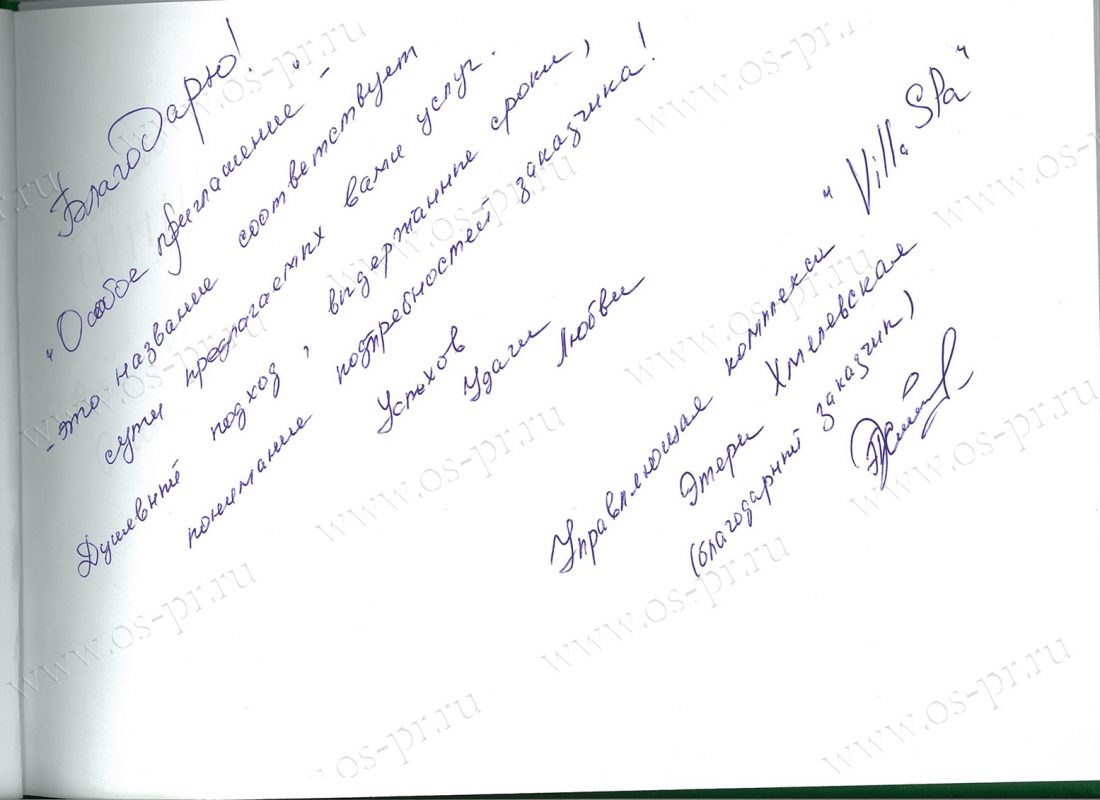 Благодарю!
"Особое приглашение" -
- это название соответствует
сути предлагаемых вами услуг.
Душевный подход, выдержанные сроки,
понимание потребностей заказчика!
Успехов
Удачи
Любви
Управляющая комплекса "Villa SPa"
Этери Хмелевская
(благодарный заказчик)
www.os-pr.ru